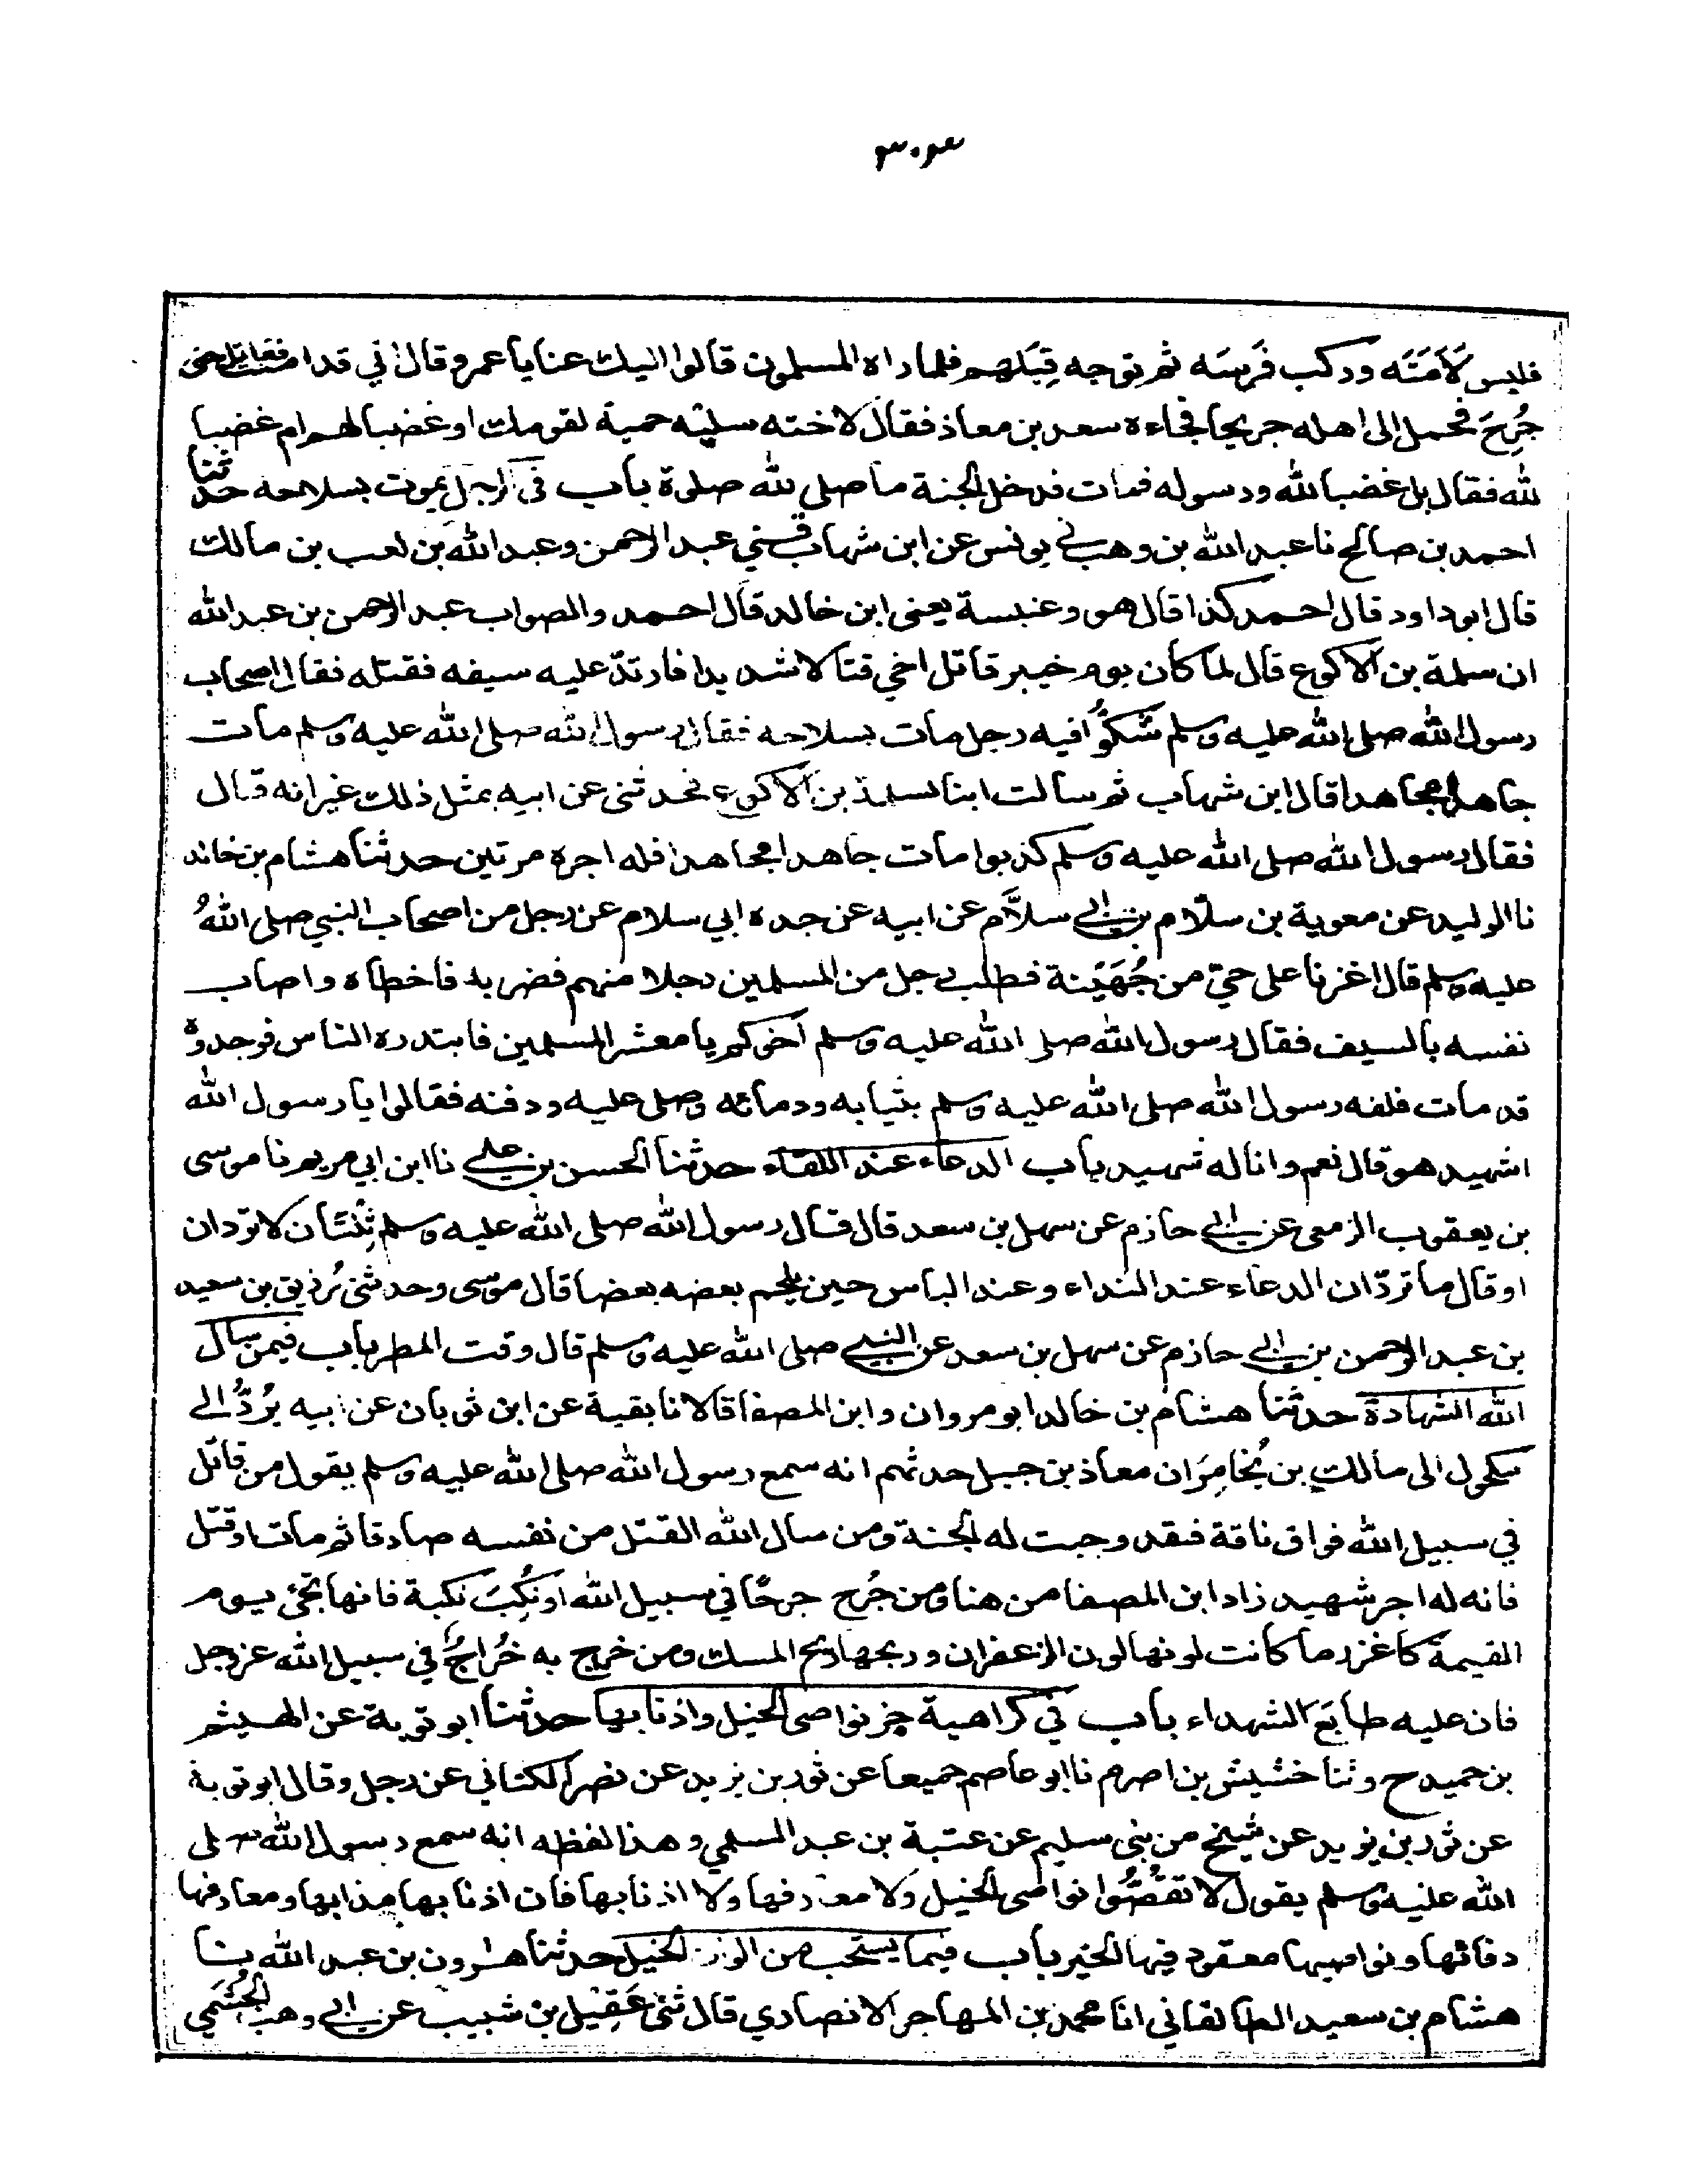 ٣٠٤
فلبس لَأمَتَه وركب فَرَسَه ثم توجه قِبَلَهم فلما راه المسلمون قالوا اليك عنا يا عمرو قال اني قد امنت فقاتل حتى
جُرِحَ فحمل الى اهله جريحا فجاءه سعد بن معاذ فقال لاخته سليه حمية لقومك او غضبا لهم ام غضبا
لله فقال بل غضبا لله ورسوله فمات فدخل الجنة ما صلى لله صلوة باب في الرجل يموت بسلاحه حدثنا
احمد بن صالح نا عبد الله بن وهب ني يونس عن ابن شهاب قسني عبد الرحمن وعبد الله بن كعب بن مالك
قال ابو داود قال احمد كذا قال هو وعنبسة يعنى ابن خالد قال احمد والصواب عبد الرحمن بن عبد الله
ان سلمة بن الاكوع قال لما كان يوم خيبر قاتل اخي قتالا شديدا فارتدّ عليه سيفه فقتله فقال اصحاب
رسول الله صلى الله عليه وسلم شكّوا فيه رجل مات بسلاحه فقال رسول الله صلى الله عليه وسلم مات
جاهدا مجاهدا قال ابن شهاب ثم سالت ابنا لسلمة بن الاكوع فحدثني عن ابيه بمثل ذلك غير انه قال
فقال رسول الله صلى الله عليه وسلم كذبوا مات جاهدا مجاهدا فله اجره مرتين حدثنا هشام بن خالد
نا الوليد عن معوية بن سلّام بن ابي سلاَّم عن ابيه عن جده ابي سلام عن رجل من اصحاب النبي صلى اللهُ
عليه وسلم قال اغرنا على حيّ من جُهَيْنة فطلب رجل من المسلمين رجلا منهم فضربه فاخطاه واصاب
نفسه بالسيف فقال رسول الله صلى الله عليه وسلم اخوكم يا معشر المسلمين فابتدره الناس فوجدوه
قد مات فلفه رسول الله صلى الله عليه وسلم بثيابه ودمائه وصلى عليه ودفنه فقالوا يا رسول الله
اشهيد هو قال نعم وانا له شهيد باب الدعاء عند اللقاء حدثنا الحسن بن علي نا ابن ابي مريم نا موسى
بن يعقوب الزمعي عن ابي حازم عن سهل بن سعد قال قال رسول الله صلى الله عليه وسلم ثِنْتَان لا تردان
او قال ما تردّان الدعاء عند النداء وعند الباس حين يلجم بعضه بعضا قال موسى وحدثني رُزيق بن سعيد
بن عبد الرحمن بن ابي حازم عن سهل بن سعد عن النبي صلى الله عليه وسلم قال وقت المطر باب فيمن سال
الله الشهادة حدثنا هشام بن خالد ابو مروان وابن المصفا قالا نا بقية عن ابن ثوبان عن ابيه يُردُّ الى
مكحول الى مالك بن يُخامِرَ ان معاذ بن جبل حدثهم انه سمع رسول الله صلى الله عليه وسلم يقول من قاتل
في سبيل الله فواق ناقة فقد وجبت له الجنة ومن سال الله القتل من نفسه صادقا ثم مات او قتل
فانه له اجر شهيد زاد ابن المصفا من هنا ومن جُرح جرحًا في سبيل الله او نُكِبَ نكبة فانها تجئ يوم
القيمة كاغزر ما كانت لونها لون الزعفران وريحها ريح المسك ومن خرج به خُراجٌ في سبيل الله عز وجل
فان عليه طابَع الشهداء باب في كراهية جز نواصي الخيل واذنابها حدثنا ابو توبة عن الهيثم
بن حميد ح وثنا خشيش بن اصرم نا ابو عاصم جميعا عن ثور بن يزيد عن نصر الكناني عن رجل وقال ابو توبة
عن ثور بن يزيد عن شيخ من بني سليم عن عتبة بن عبد السلمي وهذا لفظه انه سمع رسول الله صلى
الله عليه وسلم يقول لا تقُصُّوا نواصى الخيل ولا معارفها ولا اذنابها فان اذنابها مذابها ومعارفها
دفائها ونواصيها معقود فيها الخير باب فيما يستحب من الوان الخيل حدثنا هٰرون بن عبد الله نا
هشام بن سعيد الطالقاني انا محمد بن المهاجر الانصاري قال ثني عَقِيل بن شبيب عن ابي وهب الجُشَمي